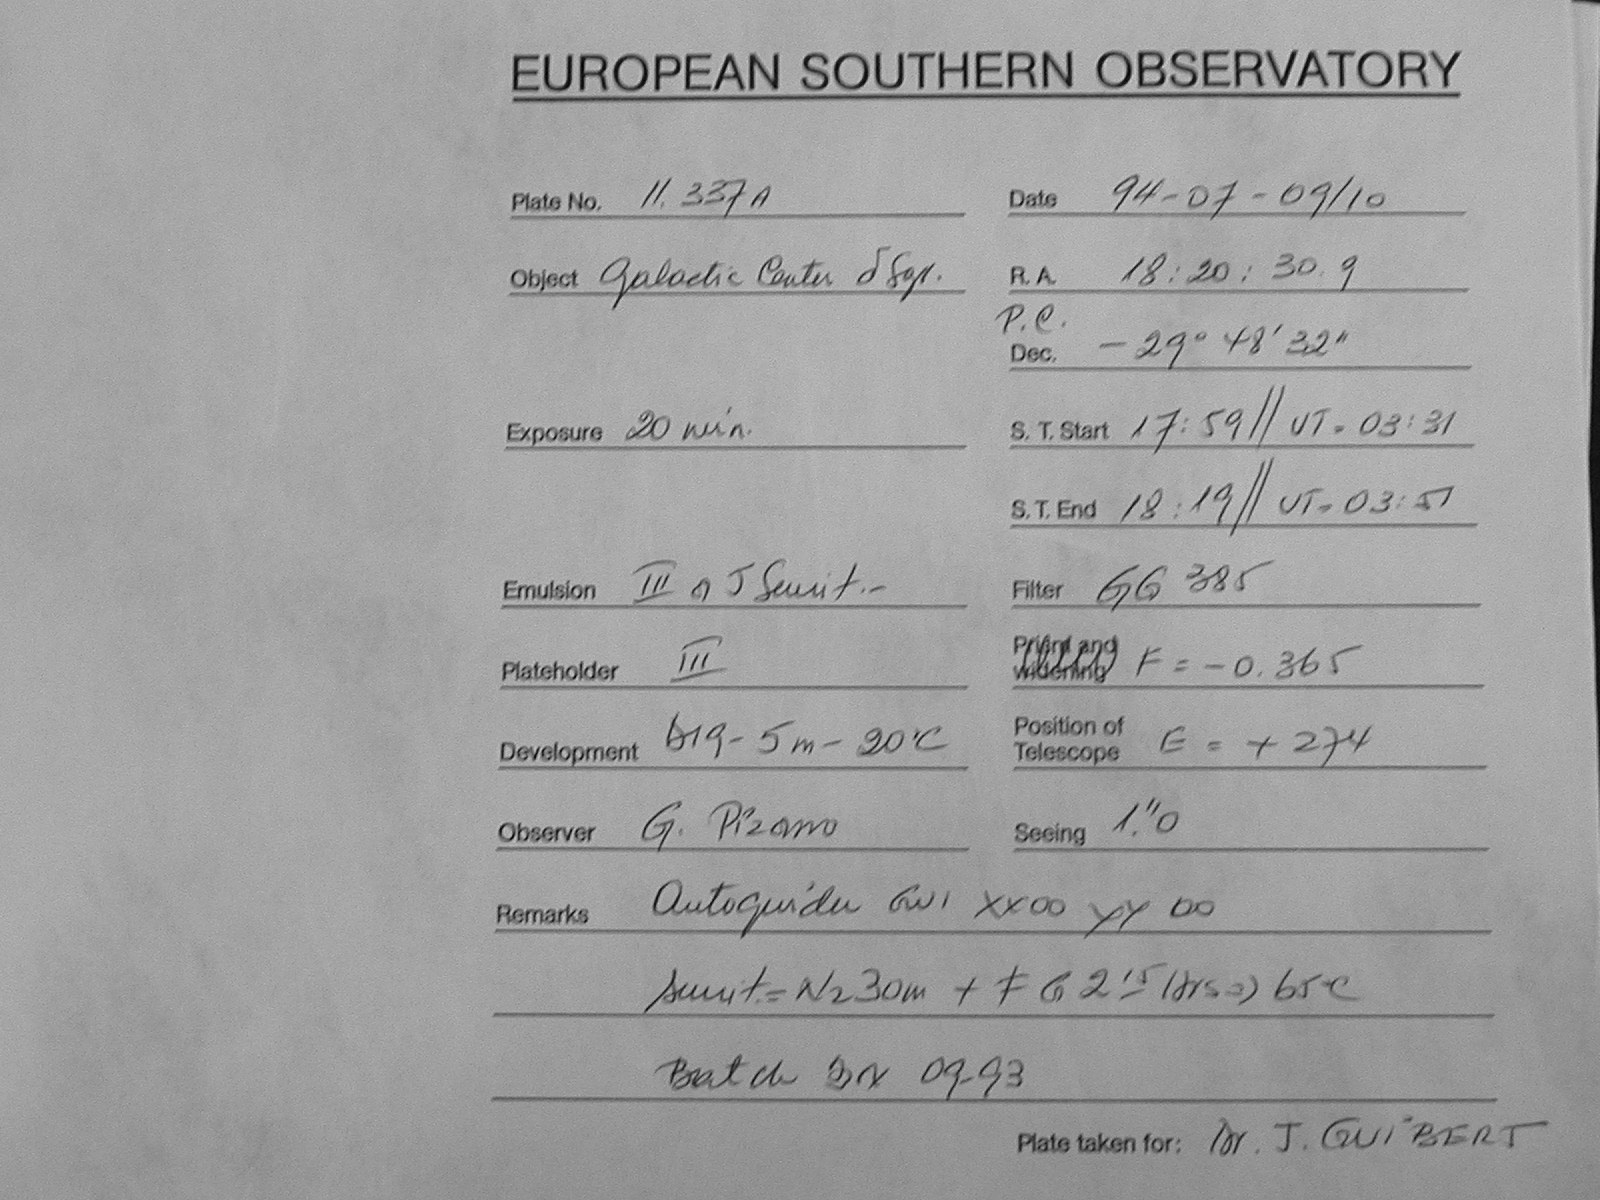 EUROPEAN SOUTHERN OBSERVATORY
Plate No. 11.337A Date 94-07-09/10
Object Galactic Center δ Sgr. R.A. 18:20:30.9
P.C.
Dec. -29° 48' 32"
Exposure 20 min. S. T. Start 17:59 // UT. 03:31
S. T. End 18:19 // UT. 03:51
Emulsion III a J Sensit.- Filter GG 385
Plateholder III Prism and widening F = -0.365
Development D19 - 5m - 20°C Position of Telescope E = +274
Observer G. Pizarro Seeing 1."0
Remarks Autoguider GUI XX00 YY 00
Sensit.= N2 30m + F G 2 65°C
Batch 09-93
Plate taken for: Dr. J. GUIBERT